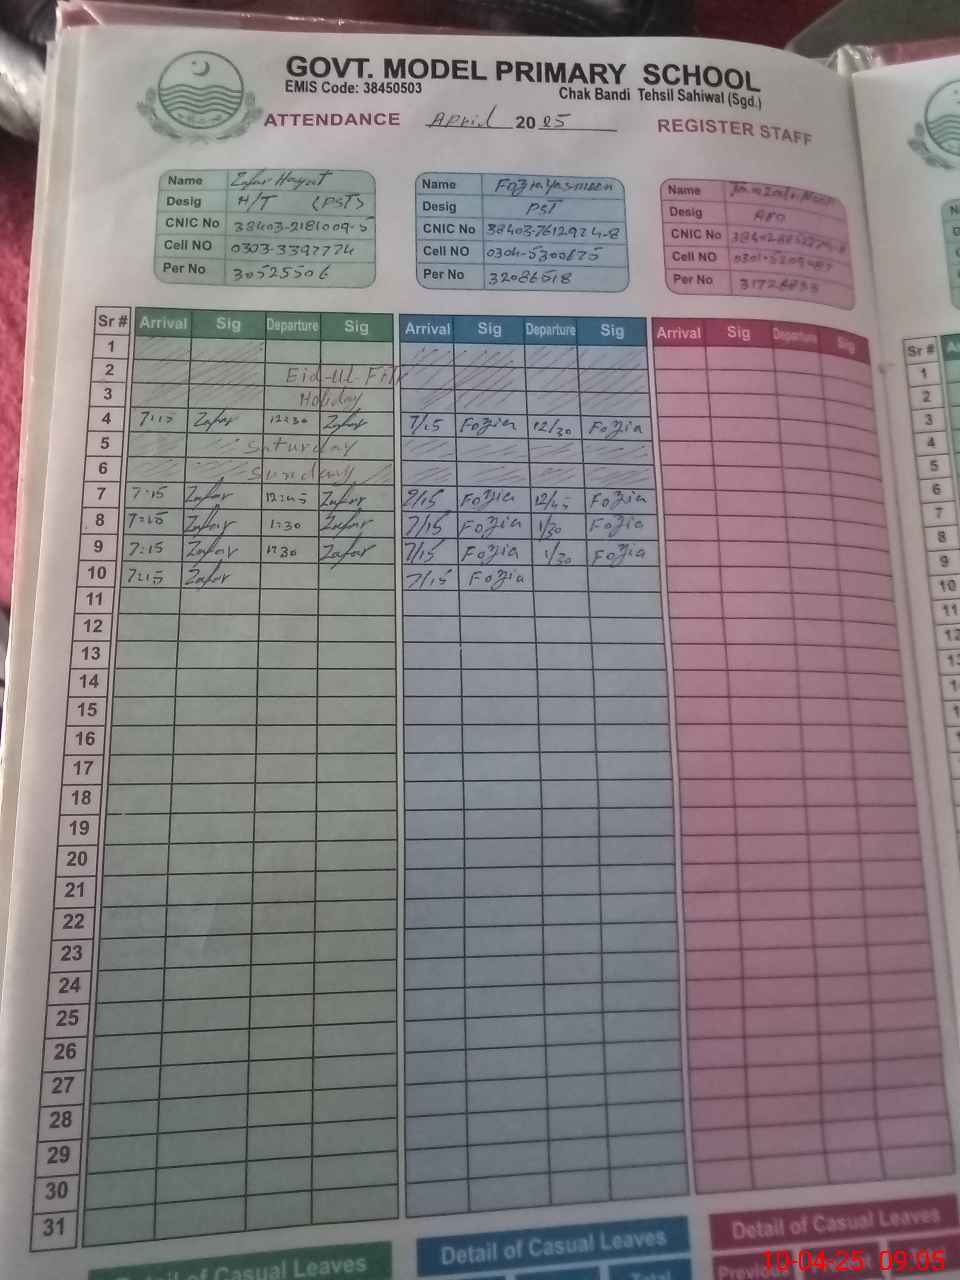 GOVT. MODEL PRIMARY SCHOOL
EMIS Code: 38450503
Chak Bandi Tehsil Sahiwal (Sgd.)
ATTENDANCE April 2025 REGISTER STAFF
Name Zafar Hayat
Desig H/T (PST)
CNIC No 38403-2181009-5
Cell NO 0303-3397774
Per No 30525506
Name Fozia Yasmeen
Desig PST
CNIC No 38403-7612924-8
Cell NO 0304-5300675
Per No 32086518
Name
Desig
CNIC No
Cell NO
Per No
Sr # Arrival Sig Departure Sig Arrival Sig Departure Sig Arrival Sig Departure Sig
1
2 Eid-ul-Fitr
3 Holiday
4 7:15 Zafar 12:30 Zafar 7/15 Fozia 12/30 Fozia
5 Saturday
6 Sunday
7 7:15 Zafar 12:45 Zafar 7/15 Fozia 12/45 Fozia
8 7:15 Zafar 1:30 Zafar 7/15 Fozia 1/30 Fozia
9 7:15 Zafar 1:30 Zafar 7/15 Fozia 1/30 Fozia
10 7:15 Zafar 7/15 Fozia
11
12
13
14
15
16
17
18
19
20
21
22
23
24
25
26
27
28
29
30
31
Detail of Casual Leaves
Detail of Casual Leaves
Detail of Casual Leaves
Total
Previous
Sr #
1
2
3
4
5
6
7
8
9
10
11
10-04-25 09:05